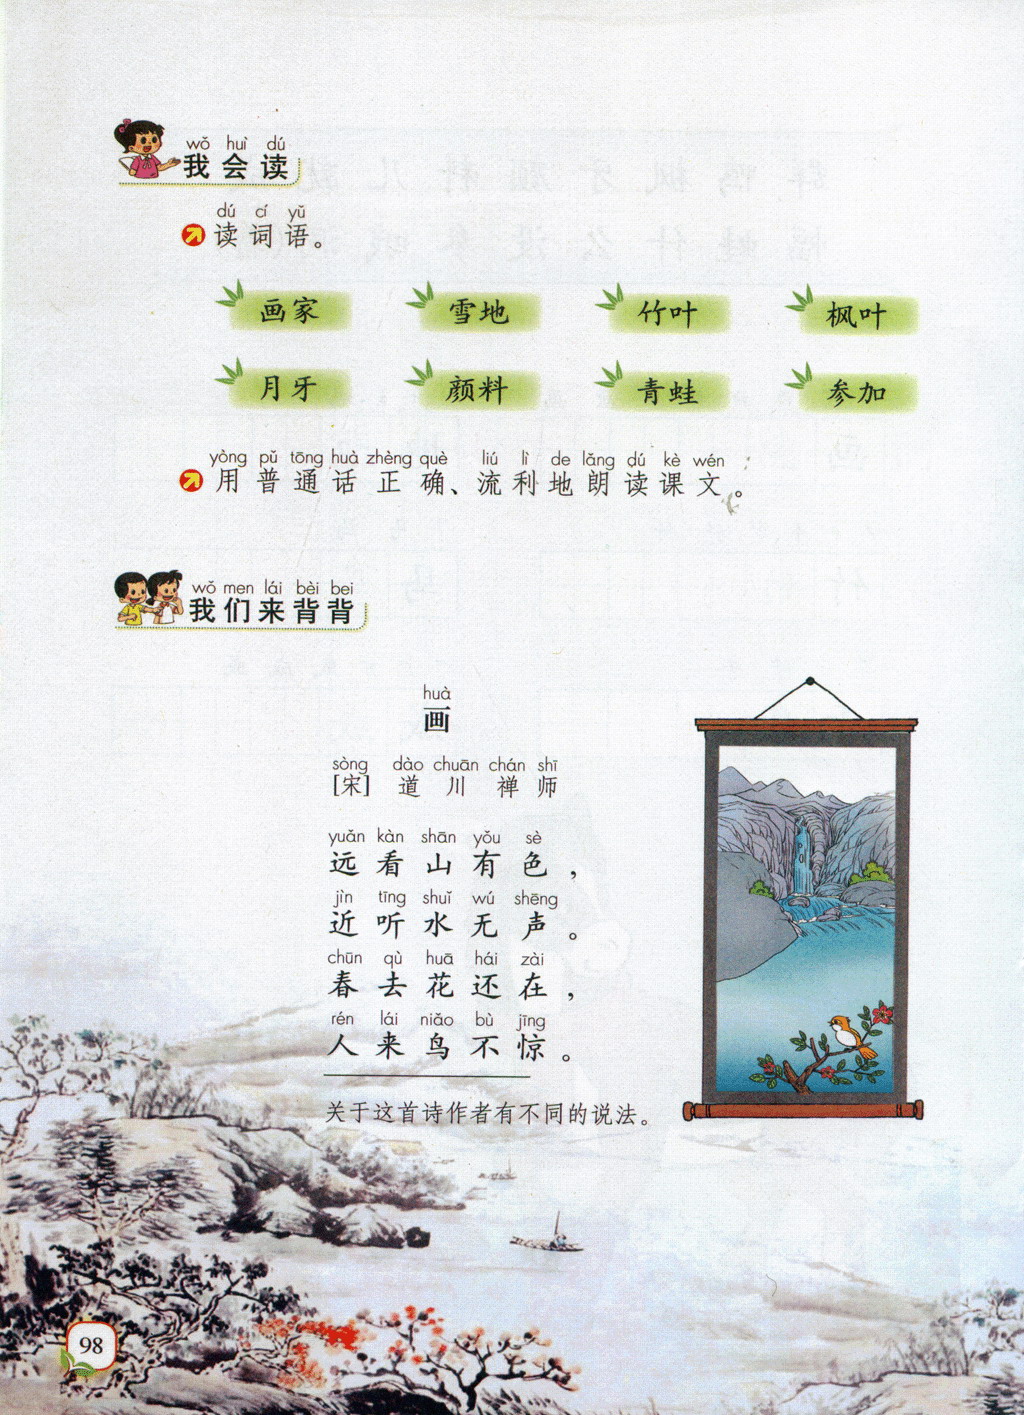 wǒ huì dú
我会读
dú cí yǔ
读词语。
画家 雪地 竹叶 枫叶
月牙 颜料 青蛙 参加
yòng pǔ tōng huà zhèng què liú lì de lǎng dú kè wén
用普通话正确、流利地朗读课文。
wǒ men lái bèi bei
我们来背背
huà
画
sòng dào chuān chán shī
[宋] 道川禅师
yuǎn kàn shān yǒu sè
远看山有色，
jìn tīng shuǐ wú shēng
近听水无声。
chūn qù huā hái zài
春去花还在，
rén lái niǎo bù jīng
人来鸟不惊。
关于这首诗作者有不同的说法。
98